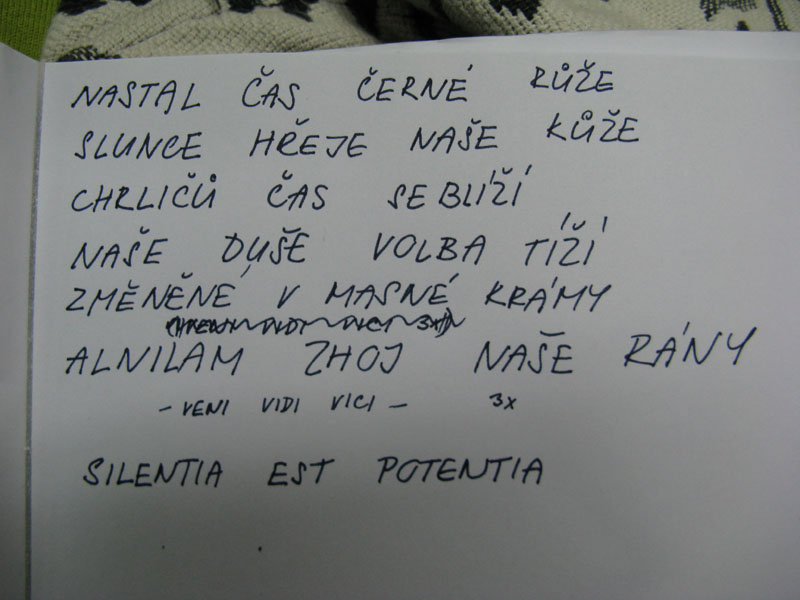 NASTAL ČAS ČERNÉ RŮŽE
SLUNCE HŘEJE NAŠE KŮŽE
CHRLIČŮ ČAS SE BLÍŽÍ
NAŠE DUŠE VOLBA TÍŽÍ
ZMĚNĚNÉ V MASNÉ KRÁMY
ALNILAM ZHOJ NAŠE RÁNY
- VENI VIDI VICI - 3x
SILENTIA EST POTENTIA